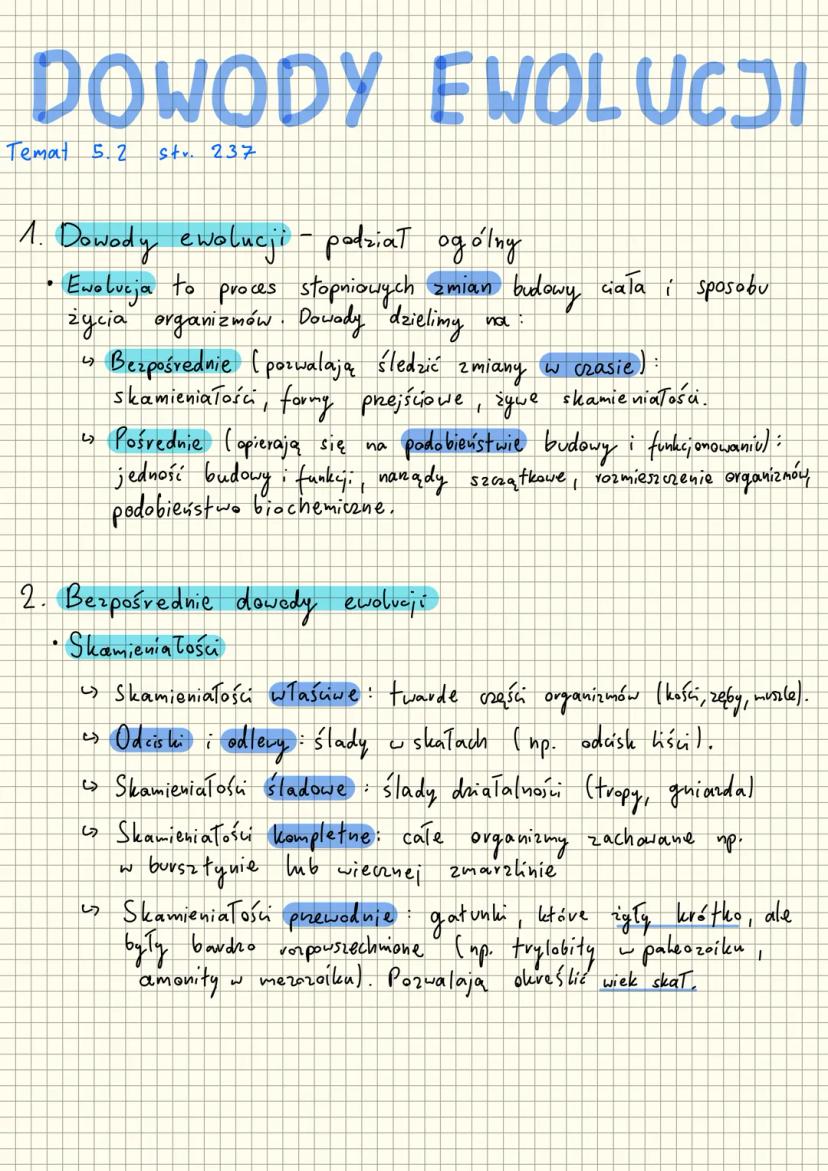 DOWODY EWOLUCJI
Temat 5.2 str. 237
1. Dowody ewolucji - podział ogólny
• Ewolucja to proces stopniowych zmian budowy ciała i sposobu
życia organizmów. Dowody dzielimy na:
↳ Bezpośrednie (pozwalają śledzić zmiany w czasie):
skamieniałości, formy przejściowe, żywe skamieniałości.
↳ Pośrednie (opierają się na podobieństwie budowy i funkcjonowaniu):
jedność budowy i funkcji, narządy szczątkowe, rozmieszczenie organizmów,
podobieństwo biochemiczne.
2. Bezpośrednie dowody ewolucji
• Skamieniałości
↳ Skamieniałości właściwe: twarde części organizmów (kości, zęby, muszle).
↳ Odciski i odlewy: ślady w skałach (np. odcisk liści).
↳ Skamieniałości śladowe: ślady działalności (tropy, gniazda)
↳ Skamieniałości kompletne: całe organizmy zachowane np.
w bursztynie lub wiecznej zmarzlinie
↳ Skamieniałości przewodnie: gatunki, które żyły krótko, ale
były bardzo rozpowszechnione (np. trylobity w paleozoiku,
amonity w mezozoiku). Pozwalają określić wiek skał.